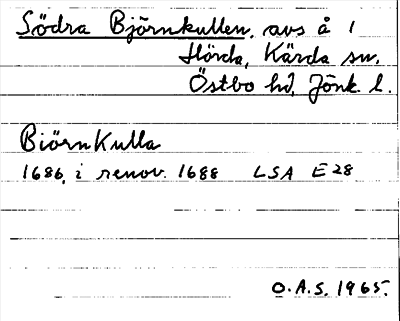 Södra Björnkullen, avs å 1
Hörda, Kärda sn,
Östbo hd, Jönk. l.
BiörnKulla
1686, i renov. 1688 LSA E 28
O.A.S. 1965.